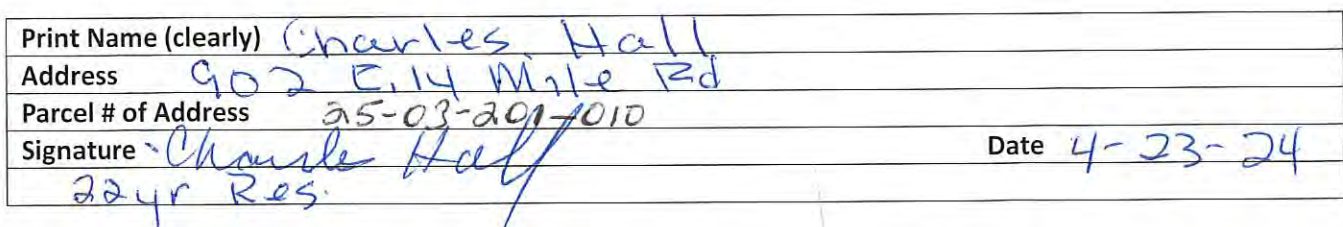 Print Name (clearly) Charles Hall
Address 902 E, 14 Mile Rd
Parcel # of Address 25-03-201-010
Signature Charles Hall Date 4-23-24
22yr Res.